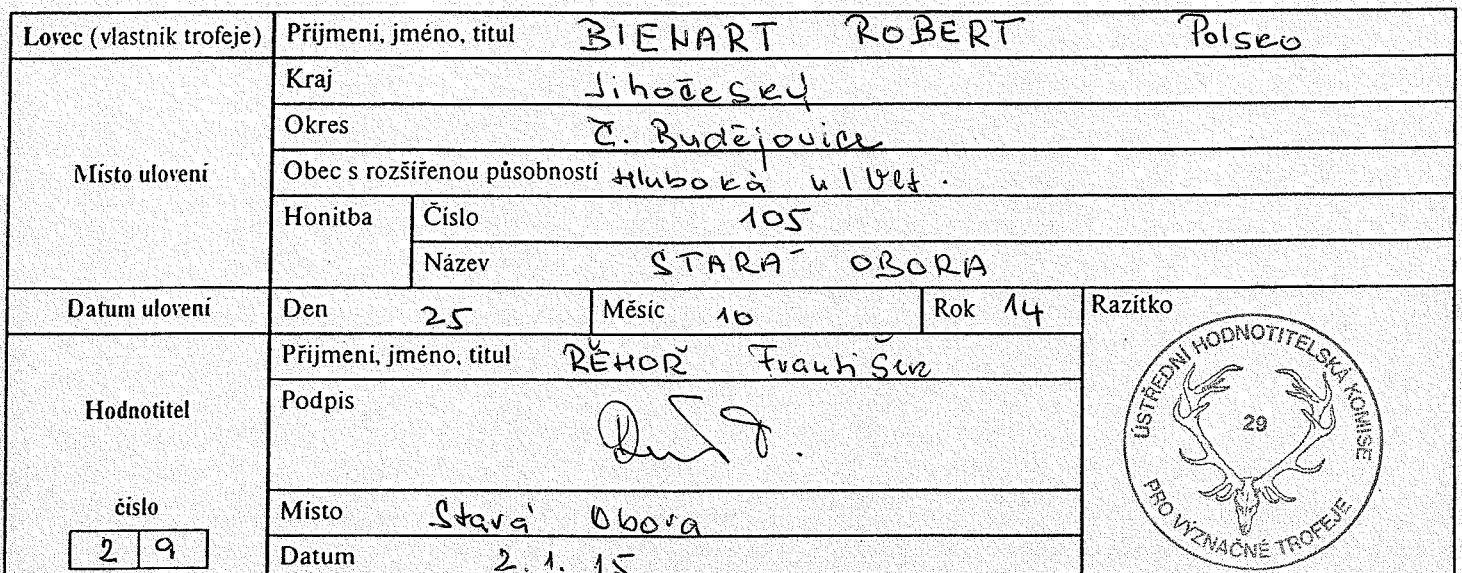 Lovec (vlastník trofeje) Příjmení, jméno, titul BIENART ROBERT Polsko
Místo ulovení
Kraj Jihočeský
Okres Č. Budějovice
Obec s rozšířenou působností Hluboká n/Vlt.
Honitba Číslo 105
Název STARÁ OBORA
Datum ulovení Den 25 Měsíc 10 Rok 14 Razítko
Hodnotitel
Příjmení, jméno, titul ŘEHOŘ František
Podpis
číslo
2 9
Místo Stará Obora
Datum 2. 1. 15
ÚSTŘEDNÍ HODNOTITELSKÁ KOMISE
29
PRO VÝZNAČNÉ TROFEJE